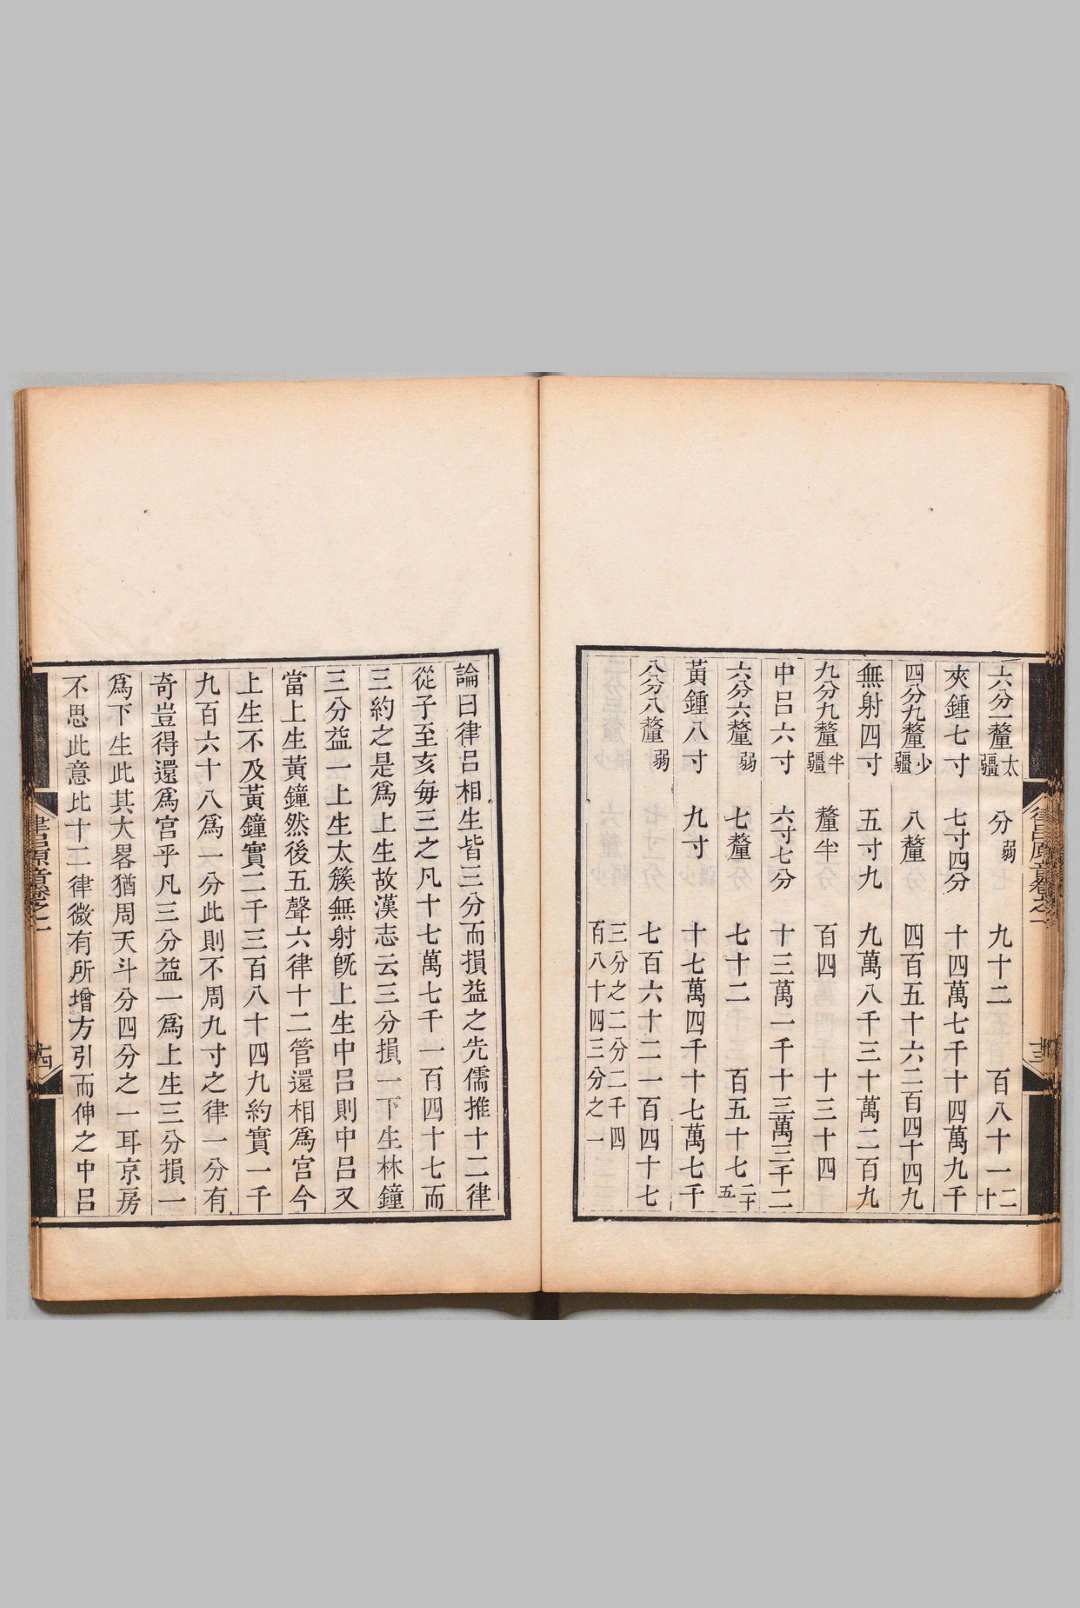 六分一釐太疆　分弱　九十二　百八十一二十
夾鍾七寸　七寸四分　十四萬七千十四萬九千
四分九釐少疆　八釐　四百五十六二百四十四九
無射四寸　五寸九　九萬八千三十萬二百九
九分九釐半疆　釐半　百四　十三十四
中呂六寸　六寸七分　十三萬一千十三萬三千二
六分六釐弱　七釐　七十二　百五十七二十五
黃鍾八寸　九寸　十七萬四千十七萬七千
八分八釐弱　七百六十二一百四十七
三分之二分二千四
百八十四三分之一
論曰律呂相生皆三分而損益之先儒推十二律
從子至亥每三之凡十七萬七千一百四十七而
三約之是爲上生故漢志云三分損一下生林鐘
三分益一上生太簇無射旣上生中呂則中呂又
當上生黃鐘然後五聲六律十二管還相爲宮今
上生不及黃鐘實二千三百八十四九約實一千
九百六十八爲一分此則不周九寸之律一分有
奇豈得還爲宮乎凡三分益一爲上生三分損一
爲下生此其大畧猶周天斗分四分之一耳京房
不思此意比十二律微有所增方引而伸之中呂
律呂原音卷之一
十四